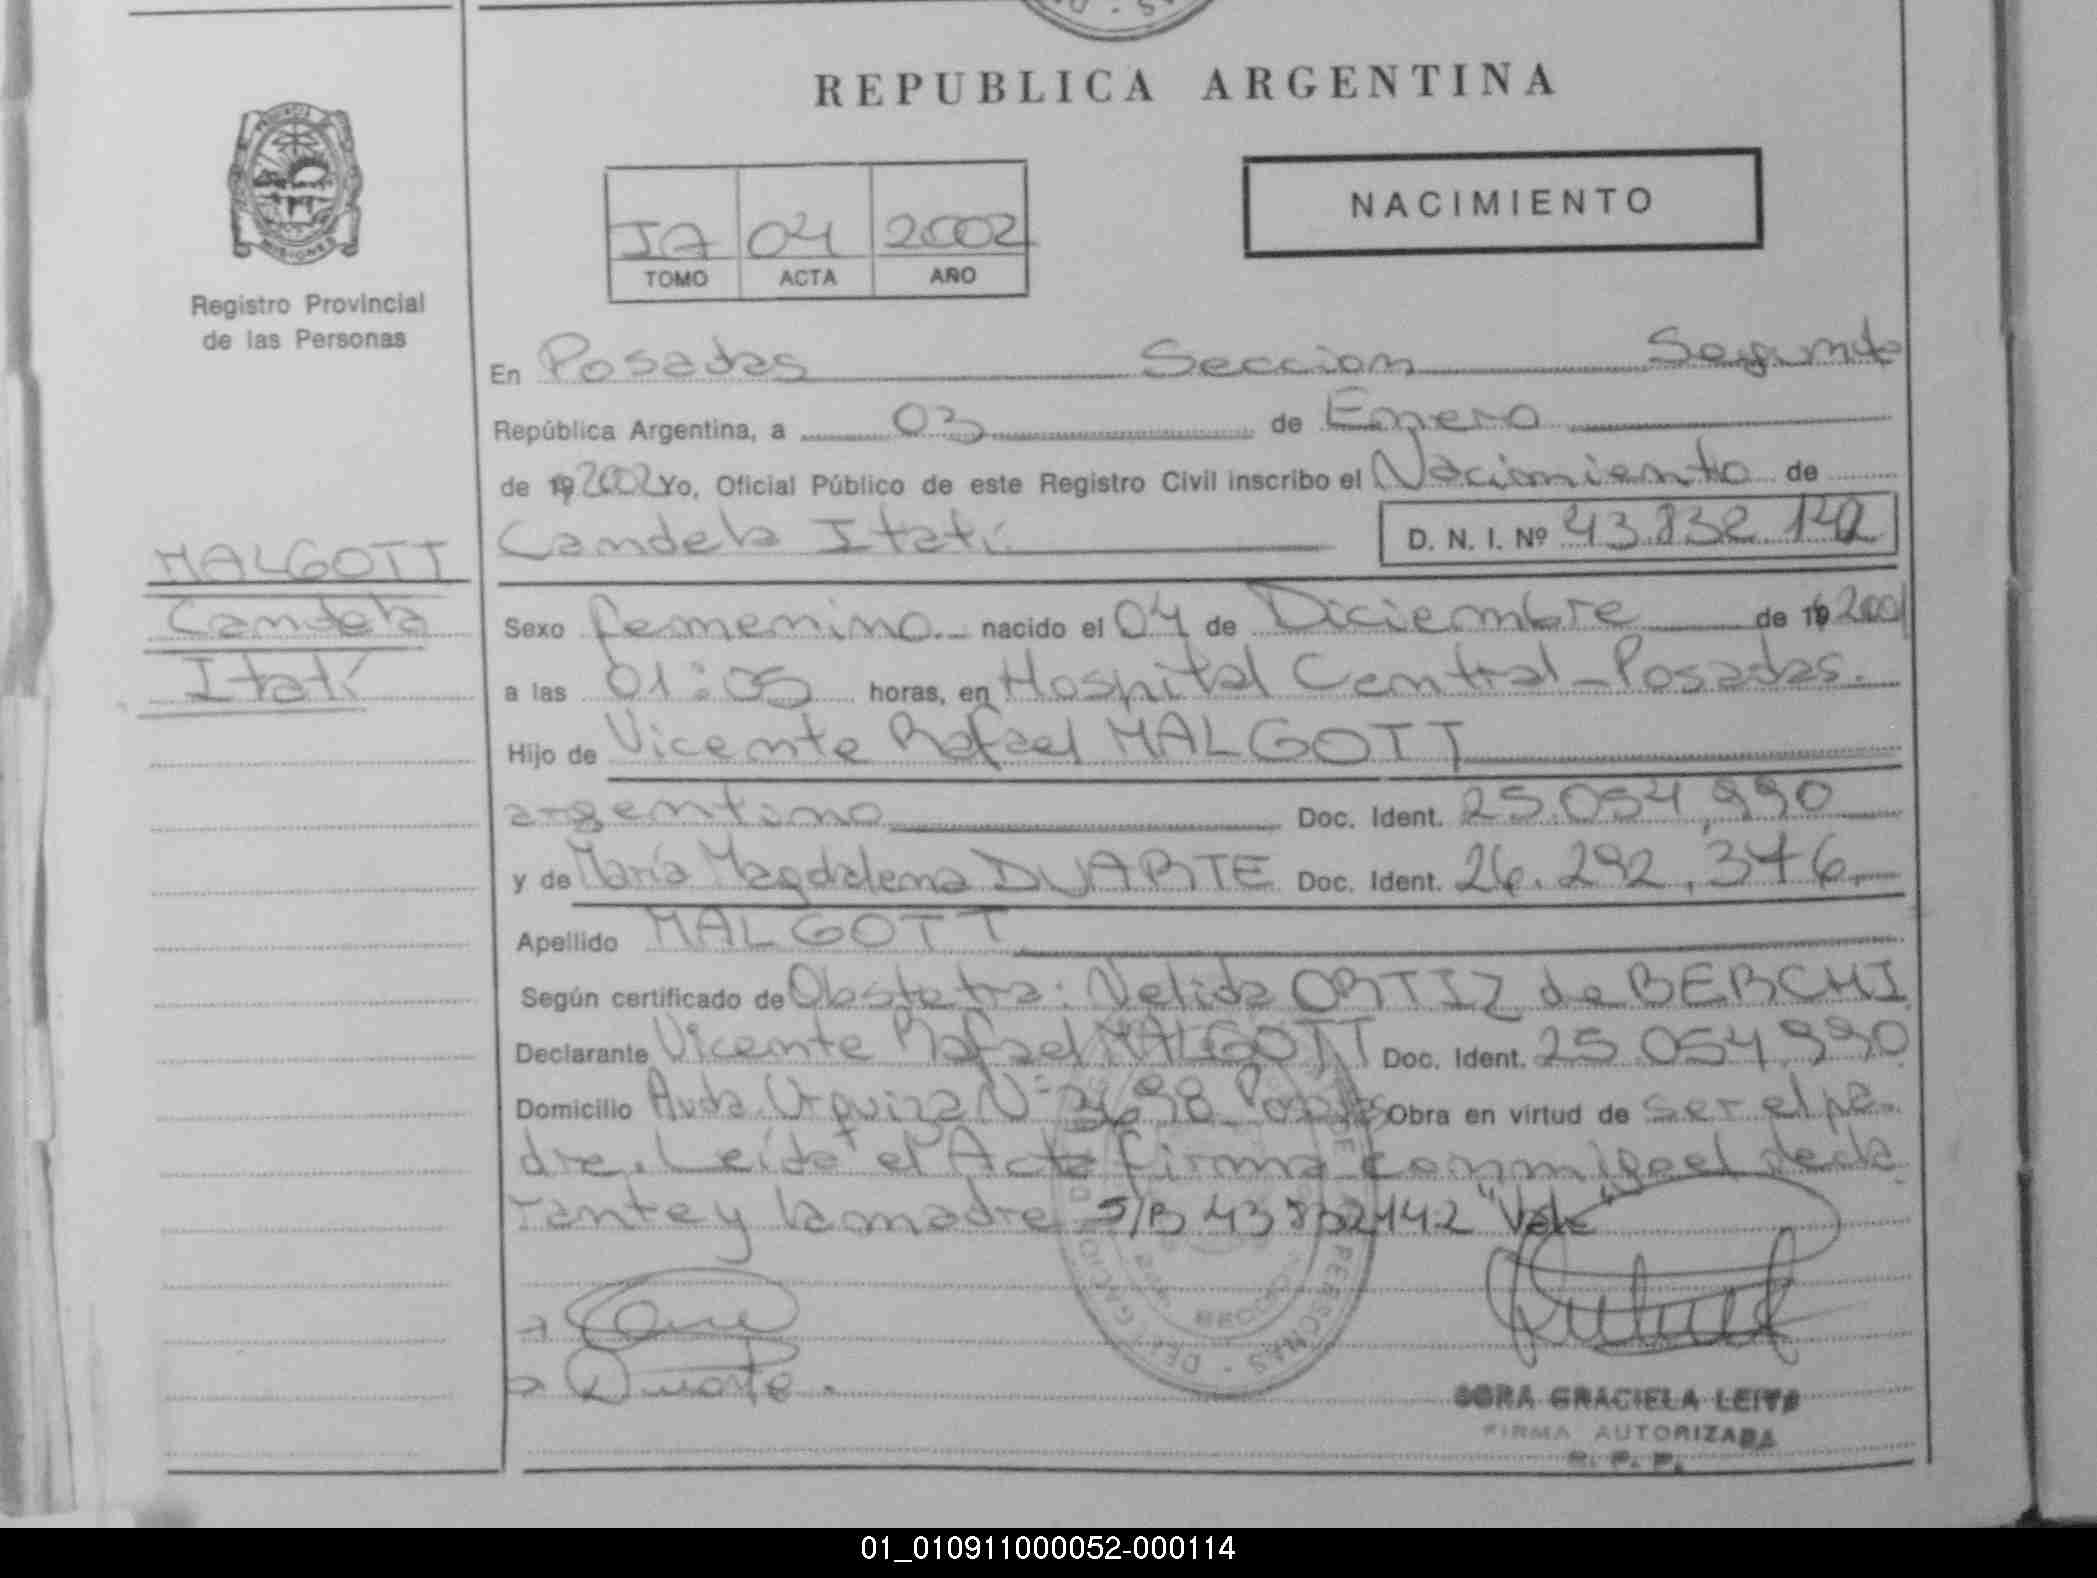 REPUBLICA ARGENTINA
NACIMIENTO
2002
04
IA
TOMO ACTA AÑO
PROVINCIA DE
MISIONES
Registro Provincial
de las Personas
En Posadas Seccion Segunda
República Argentina, a 03 de Enero
de 19 2002 Yo, Oficial Público de este Registro Civil inscribo el Nacimiento de
Candela Itatí D. N. I. Nº 43.832.142
MALGOTT
Candela
Itatí
Sexo femenino nacido el 04 de Diciembre de 19 2001
a las 01:05 horas, en Hospital Central - Posadas.
Hijo de Vicente Rafael MALGOTT
argentino Doc. Ident. 25.054.990
y de María Magdalena DUARTE Doc. Ident. 26.292.346
Apellido MALGOTT
Según certificado de Obstetra: Nelida ORTIZ de BERCHI
Declarante Vicente Rafael MALGOTT Doc. Ident. 25.054.990
Domicilio Avda. Urquiza Nº 3698 Posadas Obra en virtud de ser el pa-
dre. Leída el Acta firma conmigo el decla
rante y la madre S/B 43832142 "Vale"
2da. SECCION
Duarte.
GRACIELA LEITE
FIRMA AUTORIZADA
R. P. P.
01_010911000052-000114